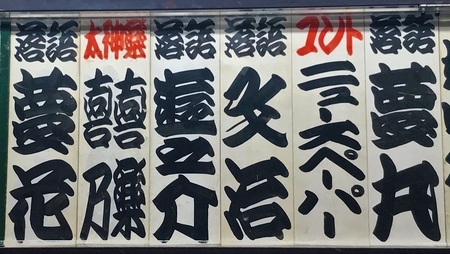 落語
夢丸
コント
ニュースペーパー
落語
文治
落語
遊之介
太神樂
喜樂
喜乃
落語
夢花